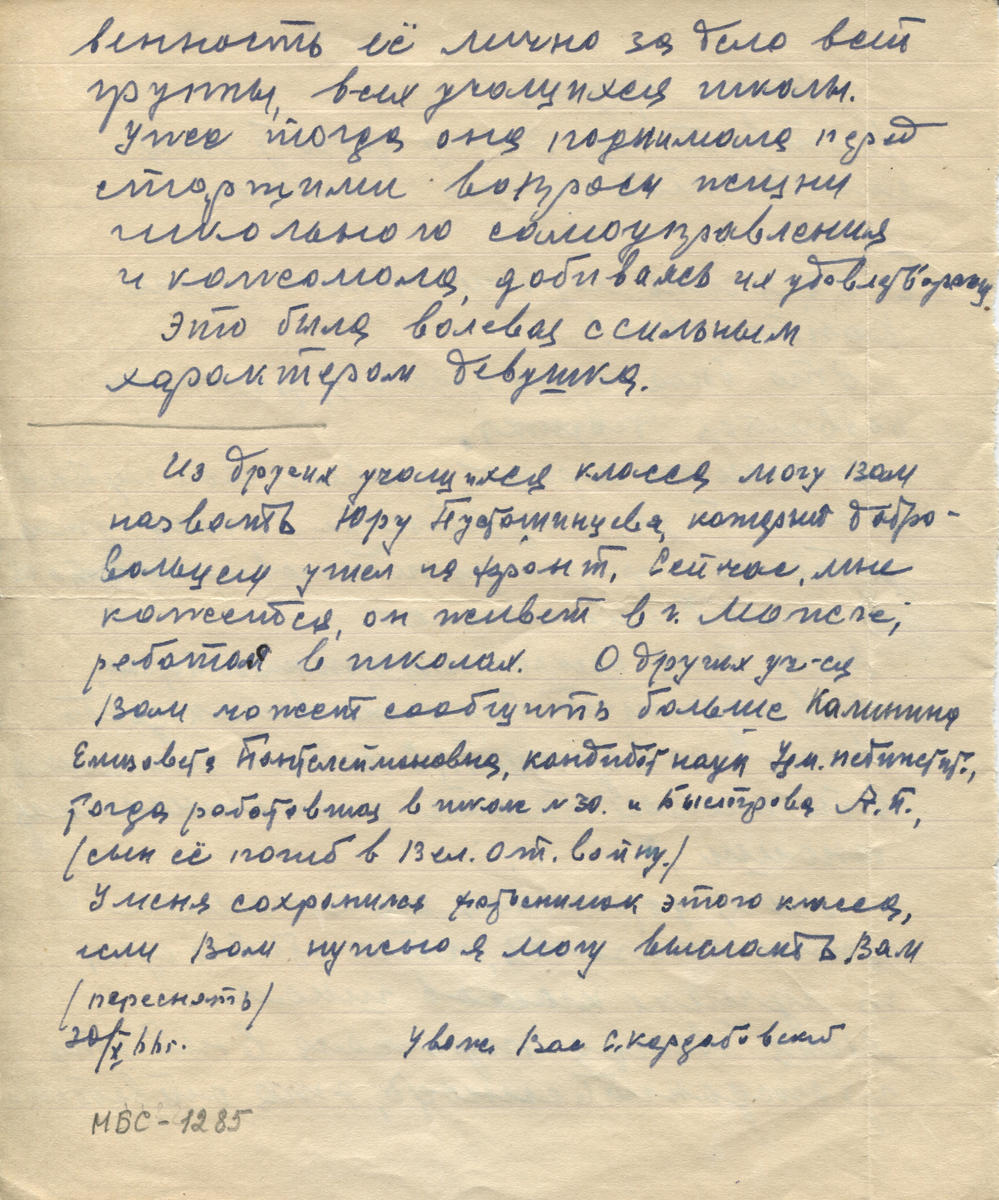 венность её лично за дело всей
группы, всех учащихся школы.
Уже тогда она поднимала перед
старшими вопросы жизни
школьного самоуправления
и комсомола, добиваясь их удовлетворения.
Это была волевая с сильным
характером девушка.
Из других учащихся класса могу Вам
назвать Юру Пустошинцева, который добро-
вольцем ушел на фронт. Сейчас, мне
кажется, он живет в г. Можге,
работая в школах. О других уч-ся
Вам может сообщить больше Калинина
Елизавета Пантелеймоновна, кандидат наук Удм. пединстит.,
тогда работавшая в школе №30. и Быстрова А.П.,
(сын её погиб в Вел. От. войну.)
У меня сохранился фотоснимок этого класса,
если Вам нужно я могу выслать Вам
(переснять)
30/X 66г.
Уваж. Вас С. Кардабовский
МБС-1285